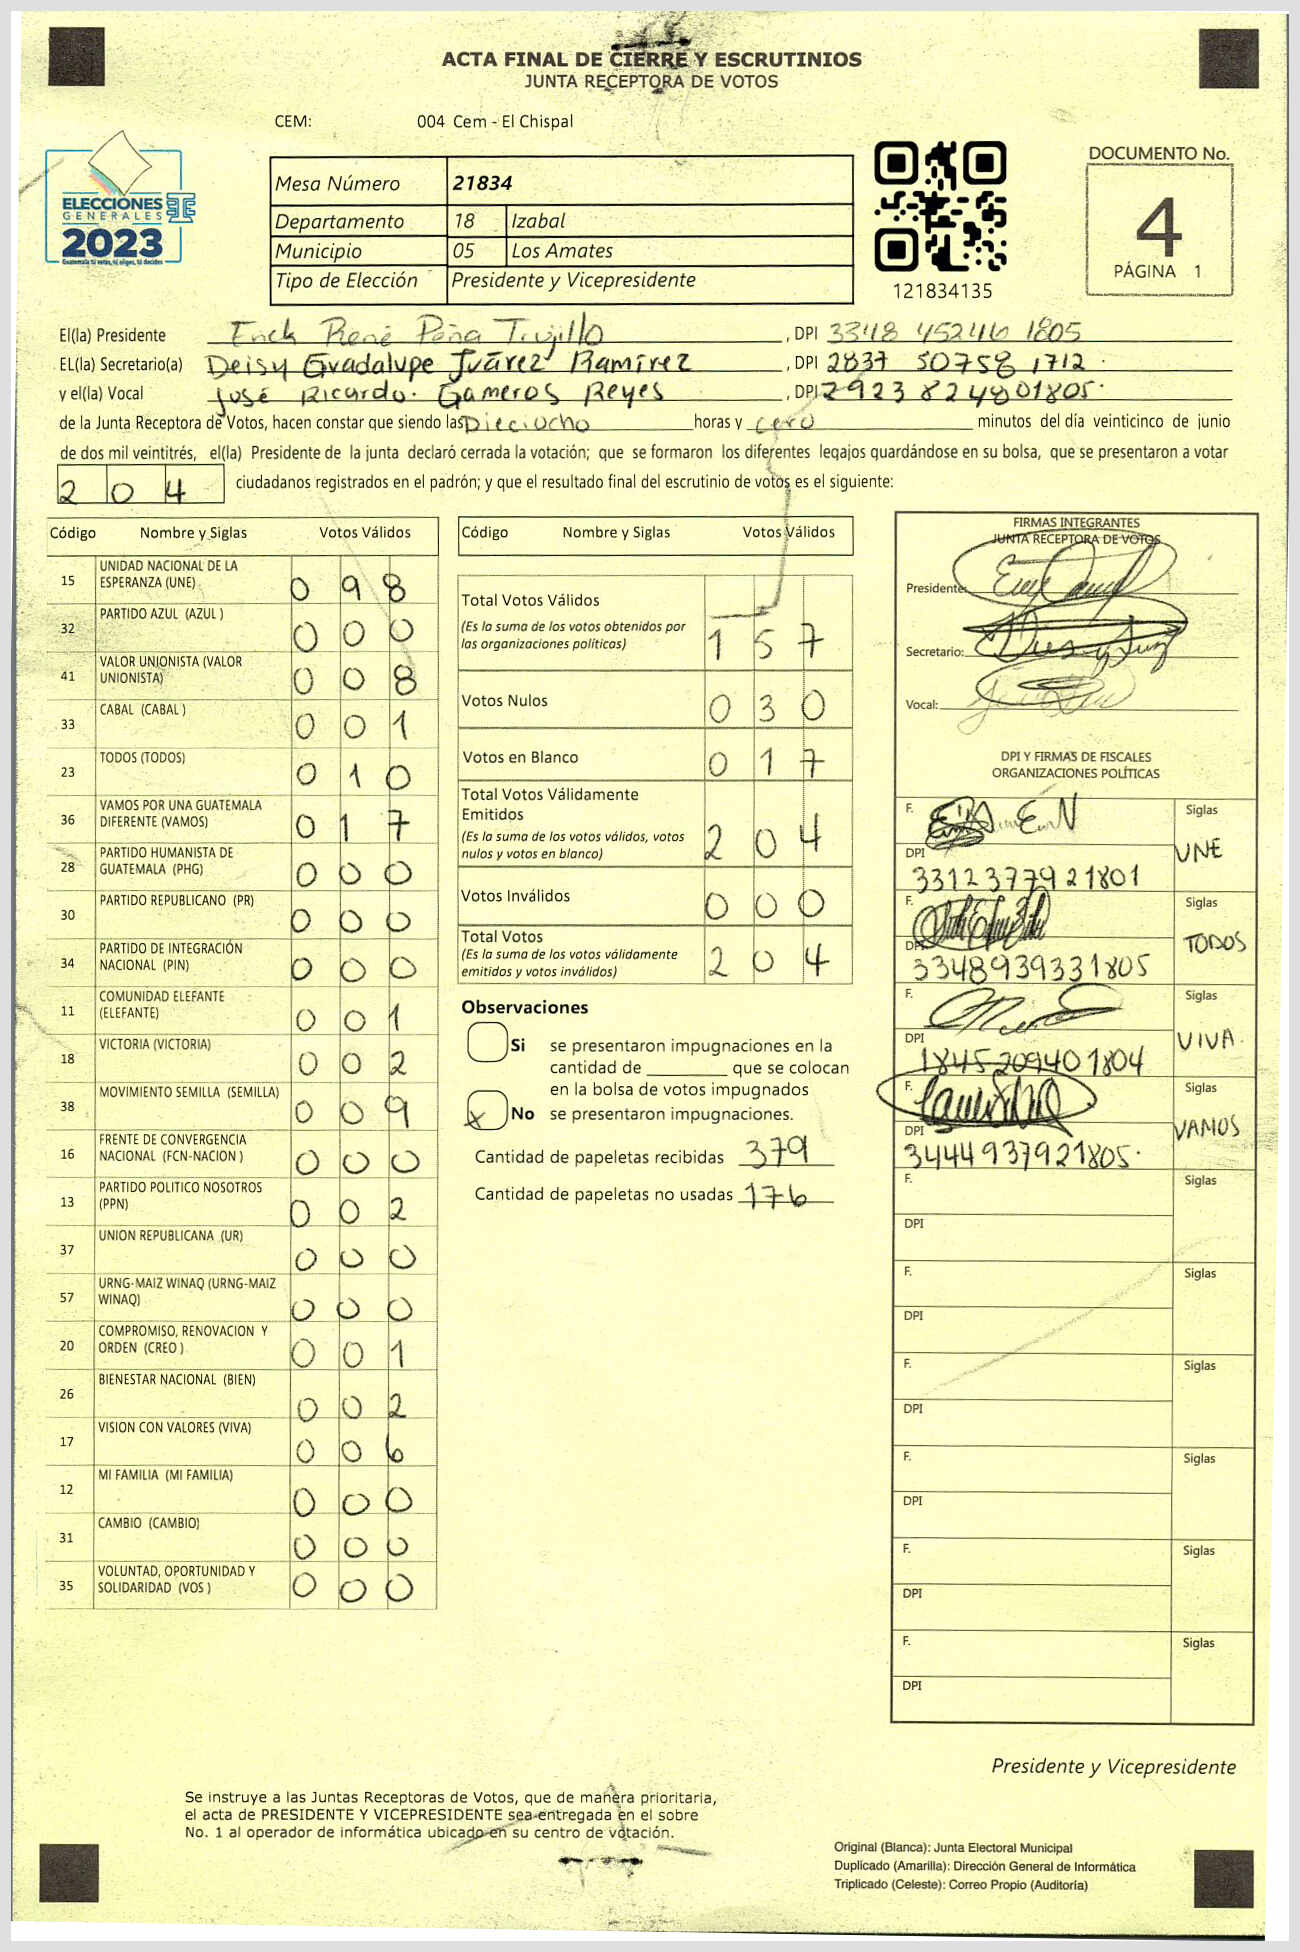 ACTA FINAL DE CIERRE Y ESCRUTINIOS
JUNTA RECEPTORA DE VOTOS
CEM: 004 Cem - El Chispal
ELECCIONES
GENERALES
2023
Guatemala tú votas, tú eliges, tú decides
Mesa Número 21834
Departamento 18 Izabal
Municipio 05 Los Amates
Tipo de Elección Presidente y Vicepresidente
121834135
DOCUMENTO No.
4
PÁGINA 1
El(la) Presidente Erick René Peña Trujillo, DPI 3348 45246 1805
EL(la) Secretario(a) Deisy Guadalupe Juárez Ramírez, DPI 2837 50758 1712
y el(la) Vocal José Ricardo Gameros Reyes, DPI 2923 82480 1805
de la Junta Receptora de Votos, hacen constar que siendo las Dieciocho horas y cero minutos del día veinticinco de junio
de dos mil veintitrés, el(la) Presidente de la junta declaró cerrada la votación; que se formaron los diferentes legajos guardándose en su bolsa, que se presentaron a votar
204 ciudadanos registrados en el padrón; y que el resultado final del escrutinio de votos es el siguiente:
Código Nombre y Siglas Votos Válidos
15 UNIDAD NACIONAL DE LA ESPERANZA (UNE) 098
32 PARTIDO AZUL (AZUL ) 000
41 VALOR UNIONISTA (VALOR UNIONISTA) 008
33 CABAL (CABAL ) 001
23 TODOS (TODOS) 010
36 VAMOS POR UNA GUATEMALA DIFERENTE (VAMOS) 017
28 PARTIDO HUMANISTA DE GUATEMALA (PHG) 000
30 PARTIDO REPUBLICANO (PR) 000
34 PARTIDO DE INTEGRACIÓN NACIONAL (PIN) 000
11 COMUNIDAD ELEFANTE (ELEFANTE) 001
18 VICTORIA (VICTORIA) 002
38 MOVIMIENTO SEMILLA (SEMILLA) 009
16 FRENTE DE CONVERGENCIA NACIONAL (FCN-NACION ) 000
13 PARTIDO POLITICO NOSOTROS (PPN) 002
37 UNION REPUBLICANA (UR) 000
57 URNG-MAIZ WINAQ (URNG-MAIZ WINAQ) 000
20 COMPROMISO, RENOVACION Y ORDEN (CREO ) 001
26 BIENESTAR NACIONAL (BIEN) 002
17 VISION CON VALORES (VIVA) 006
12 MI FAMILIA (MI FAMILIA) 000
31 CAMBIO (CAMBIO) 000
35 VOLUNTAD, OPORTUNIDAD Y SOLIDARIDAD (VOS ) 000
Código Nombre y Siglas Votos Válidos
Total Votos Válidos 157
(Es la suma de los votos obtenidos por
las organizaciones políticas)
Votos Nulos 030
Votos en Blanco 017
Total Votos Válidamente
Emitidos 204
(Es la suma de los votos válidos, votos
nulos y votos en blanco)
Votos Inválidos 000
Total Votos 204
(Es la suma de los votos válidamente
emitidos y votos inválidos)
Observaciones
Si se presentaron impugnaciones en la
cantidad de ________ que se colocan
en la bolsa de votos impugnados
X No se presentaron impugnaciones.
Cantidad de papeletas recibidas 379
Cantidad de papeletas no usadas 176
FIRMAS INTEGRANTES
JUNTA RECEPTORA DE VOTOS
Presidente:
Secretario:
Vocal:
DPI Y FIRMAS DE FISCALES
ORGANIZACIONES POLÍTICAS
F. Siglas UNE
DPI 3312377921801
F. Siglas TODOS
DPI 3348939331805
F. Siglas VIVA.
DPI 1845209401804
F. Siglas VAMOS
DPI 3444937921805.
F. Siglas
DPI
F. Siglas
DPI
F. Siglas
DPI
F. Siglas
DPI
F. Siglas
DPI
F. Siglas
DPI
Presidente y Vicepresidente
Se instruye a las Juntas Receptoras de Votos, que de manera prioritaria,
el acta de PRESIDENTE Y VICEPRESIDENTE sea entregada en el sobre
No. 1 al operador de informática ubicado en su centro de votación.
Original (Blanca): Junta Electoral Municipal
Duplicado (Amarilla): Dirección General de Informática
Triplicado (Celeste): Correo Propio (Auditoría)